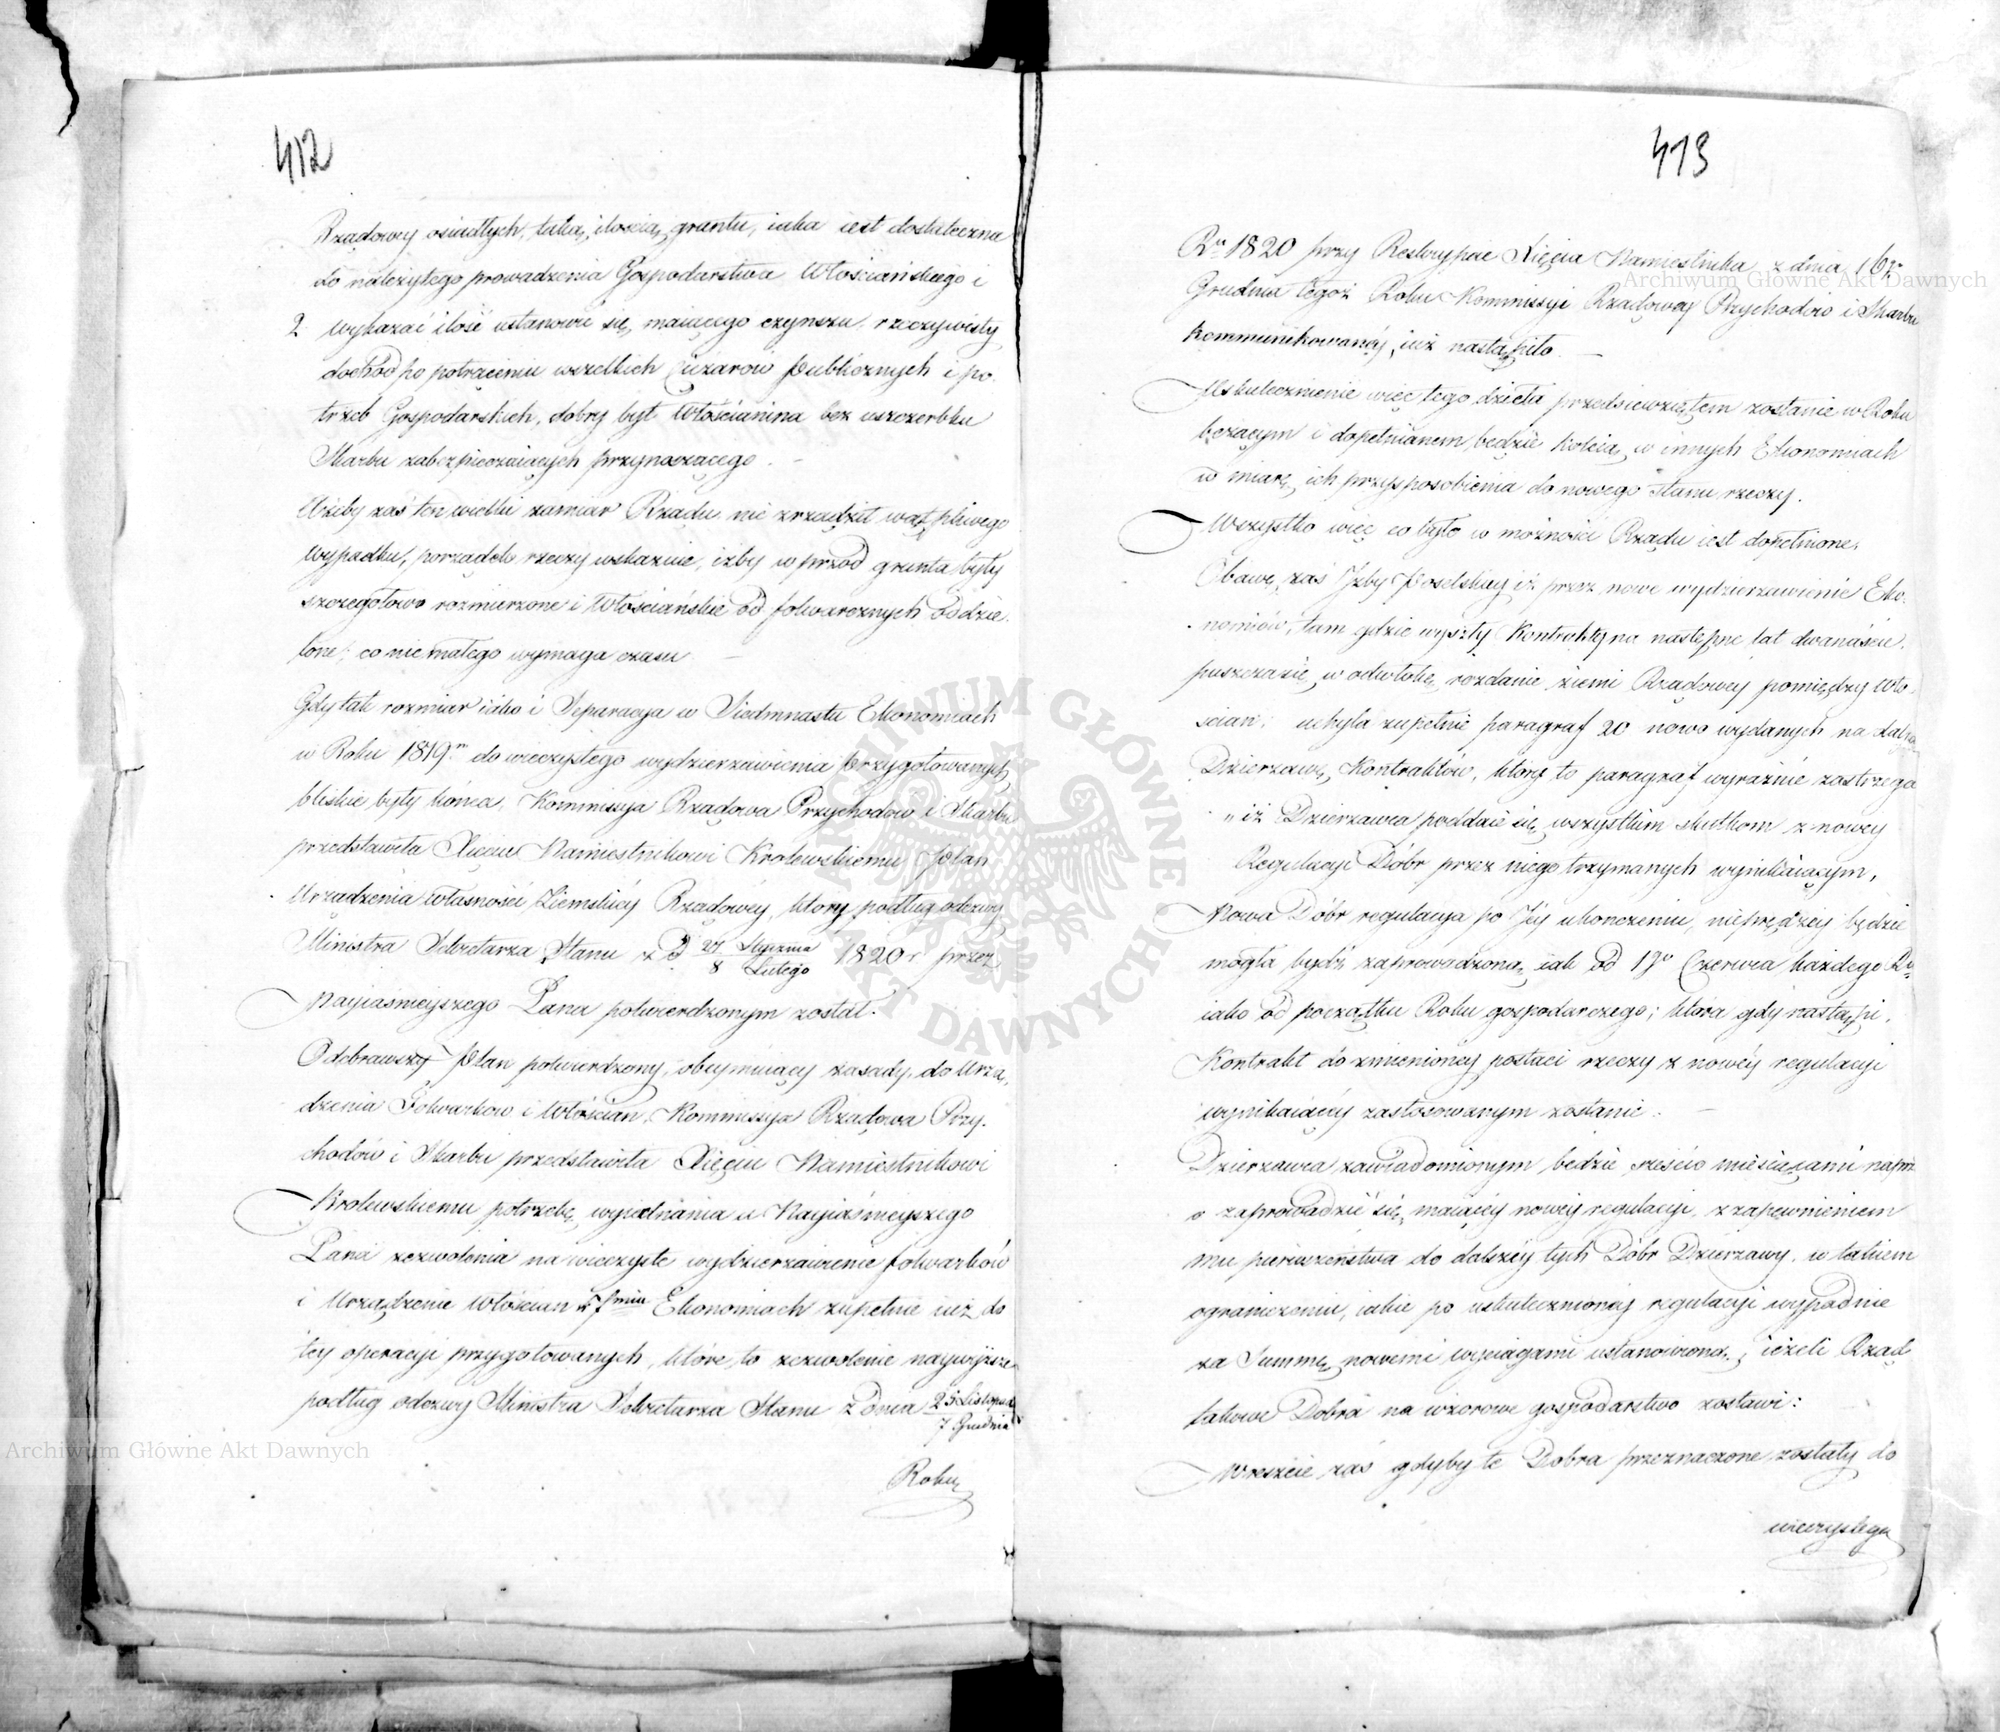 412
Rządowey osiadłych, taką ilością gruntu, iaka iest dostateczna
do należytego prowadzenia Gospodarstwa Włościańskiego i
2. wykazać ilość ustanowić się maiącego czynszu, rzeczywisty
dochód po potrąceniu wszelkich Ciężarów publicznych i po-
trzeb Gospodarskich, dobry byt Włościanina bez uszczerbku
Skarbu zabezpieczaiących przynoszącego. —
Ażeby zaś ten wielki zamiar Rządu nie zrządził wątpliwego
wypadku, porządek rzeczy wskazuie, iżby w przód grunta były
szczegółowo rozmierzone i Włościańskie od folwarcznych oddzie-
lone; co nie małego wymaga czasu —
Gdy tak rozmiar iako i Separacya w Siedmnastu Ekonomiach
w Roku 1819m do wieczystego wydzierzawienia przygotowanych
bliskie były końca, Kommissya Rządowa Przychodów i Skarbu
przedstawiła Xięciu Namiestnikowi Krolewskiemu Plan
Urządzenia własności Ziemskiéy Rządowéy, ktory podług odezwy
Ministra Sekretarza Stanu z D 27 Stycznia / 8 Lutego 1820 r przez
Nayiaśnieyszego Pana potwierdzonym został.
Odebrawszy Plan potwierdzony, obeymuiący zasady, do Urzą-
dzenia Folwarkow i Włościan, Kommissya Rządowa Przy-
chodów i Skarbu przedstawiła Xięciu Namiestnikowi
Krolewskiemu potrzebę wyiednania u Nayiaśnieyszego
Pana zezwolenia na wieczyste wydzierzawienie folwarków
i Urządzenie Włościan 17miu Ekonomiach zupełnie iuż do
tey operacyi przygotowanych, które to zezwolenie naywyższe
podług odezwy Ministra Sekretarza Stanu z dnia 25 Listopada / 7 Grudnia
Roku
413
Ru 1820 przy Reskrypcie Xięcia Namiestnika z dnia 16go
Grudnia tegoż Roku Kommissyi Rządowey Przychodów i Skarbu
kommunikowanéy, iuż nastąpiło. —
Uskutecznienie więc tego dzieła przedsięwziętem zostanie w Roku
bężącym i dopełnianem będzie koleią w innych Ekonomiach
w miarę ich przysposobienia do nowego stanu rzeczy.
Wszystko więc co było w możności Rządu iest dopełnione.
Obawę zaś Izby Poselskiey iż przez nowe wydzierzawienie Eko-
nomiów, tam gdzie wyszły Kontrakty na następne lat dwanaście,
puszcza się w odwłokę rozdanie ziemi Rządowey pomiędzy Wło-
ścian; uchyla zupełnie paragraf 20 nowo wydanych na
Dzierzawę Kontraktów, który to paragraf wyraźnie zastrzega
„iż Dzierzawca poddaie się wszystkim skutkom z nowey
Regulacyi Dóbr przez niego trzymanych wynikaiącym,
Nowa Dóbr regulacya po Iéy ukonczeniu, nieprędzey będzie
mogła bydź zaprowadzoną, iak od 1go Czerwca każdego Ru
iako od początku Roku gospodarczego; która gdy nastąpi,
Kontrakt do zmienioney postaci rzeczy z nowéy regulacyi
wynikaiącéy zastosowanym zostanie. —
Dzierzawca zawiadomionym będzie sześcio miesiącami naprzód
o zaprowadzić się maiącéy nowey regulacyi, z zapewnieniem
mu pierwszeństwa do dalszéy tych Dóbr Dzierżawy, w takiem
ograniczeniu, iakie po uskutecznionéy regulacyi wypadnie
za Summę nowemi wyciągami ustanowioną; ieżeli Rząd
takowe Dobra na wzorowe gospodarstwo zostawi:
Wreszcie zaś gdyby te Dobra przeznaczone zostały do
wieczystego
Archiwum Główne Akt Dawnych
Archiwum Główne Akt Dawnych
ARCHIWUM GŁÓWNE AKT DAWNYCH